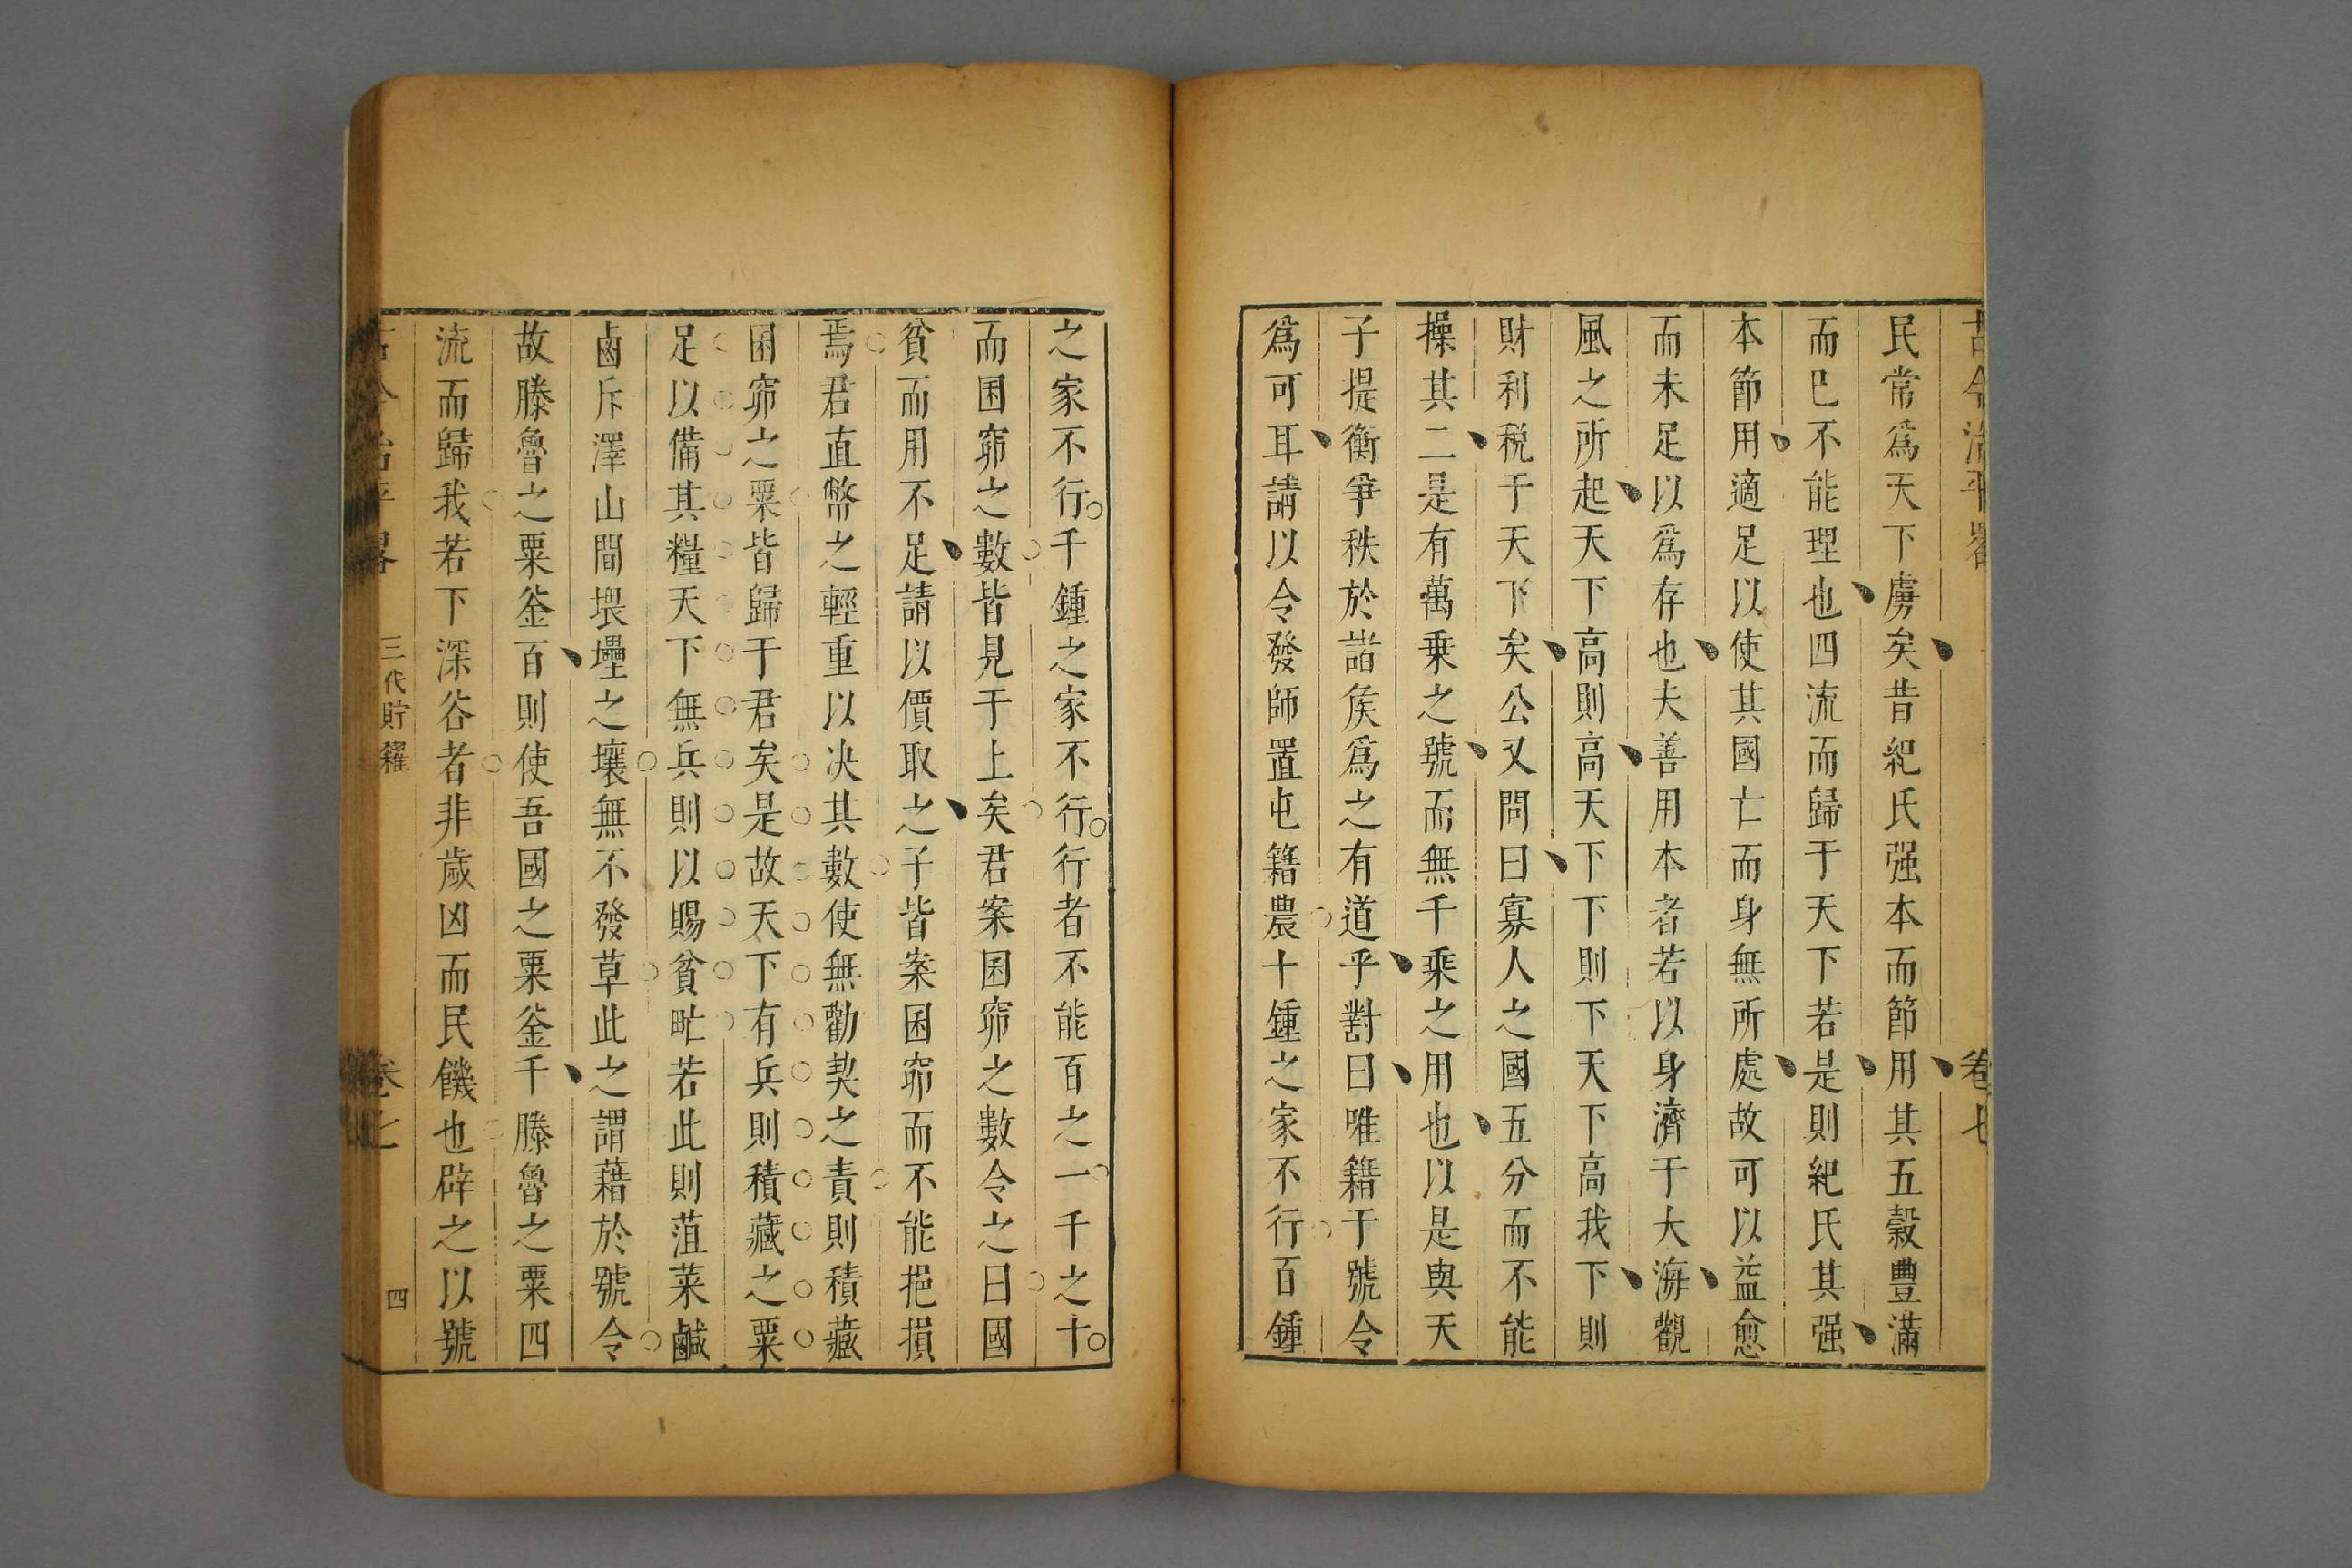 古今治平畧 卷七
民常爲天下虜矣昔紀氏强本而節用其五穀豐滿
而巳不能理也四流而歸于天下若是則紀氏其强
本節用適足以使其國亡而身無所處故可以益愈
而未足以爲存也夫善用本者若以身濟于大海觀
風之所起天下高則高天下下則下天下高我下則
財利税于天下矣公又問曰寡人之國五分而不能
操其二是有萬乗之號而無千乘之用也以是與天
子提衡爭秩於諸矦爲之有道乎對曰唯籍于號令
爲可耳請以令發師置屯籍農十鍾之家不行百鍾
之家不行千鍾之家不行行者不能百之一千之十
而囷窌之數皆見于上矣君案囷窌之數令之曰國
貧而用不足請以價取之子皆案囷窌而不能挹損
焉君直幣之輕重以决其數使無勸契之責則積藏
囷窌之粟皆歸于君矣是故天下有兵則積藏之粟
足以備其糧天下無兵則以賜貧甿若此則菹菜鹹
鹵斥澤山間㙗壘之壤無不發草此之謂藉於號令
故滕魯之粟釜百則使吾國之粟釜千滕魯之粟四
流而歸我若下深谷者非歲凶而民饑也辟之以號
古今治平畧 三代貯糴 卷七 四